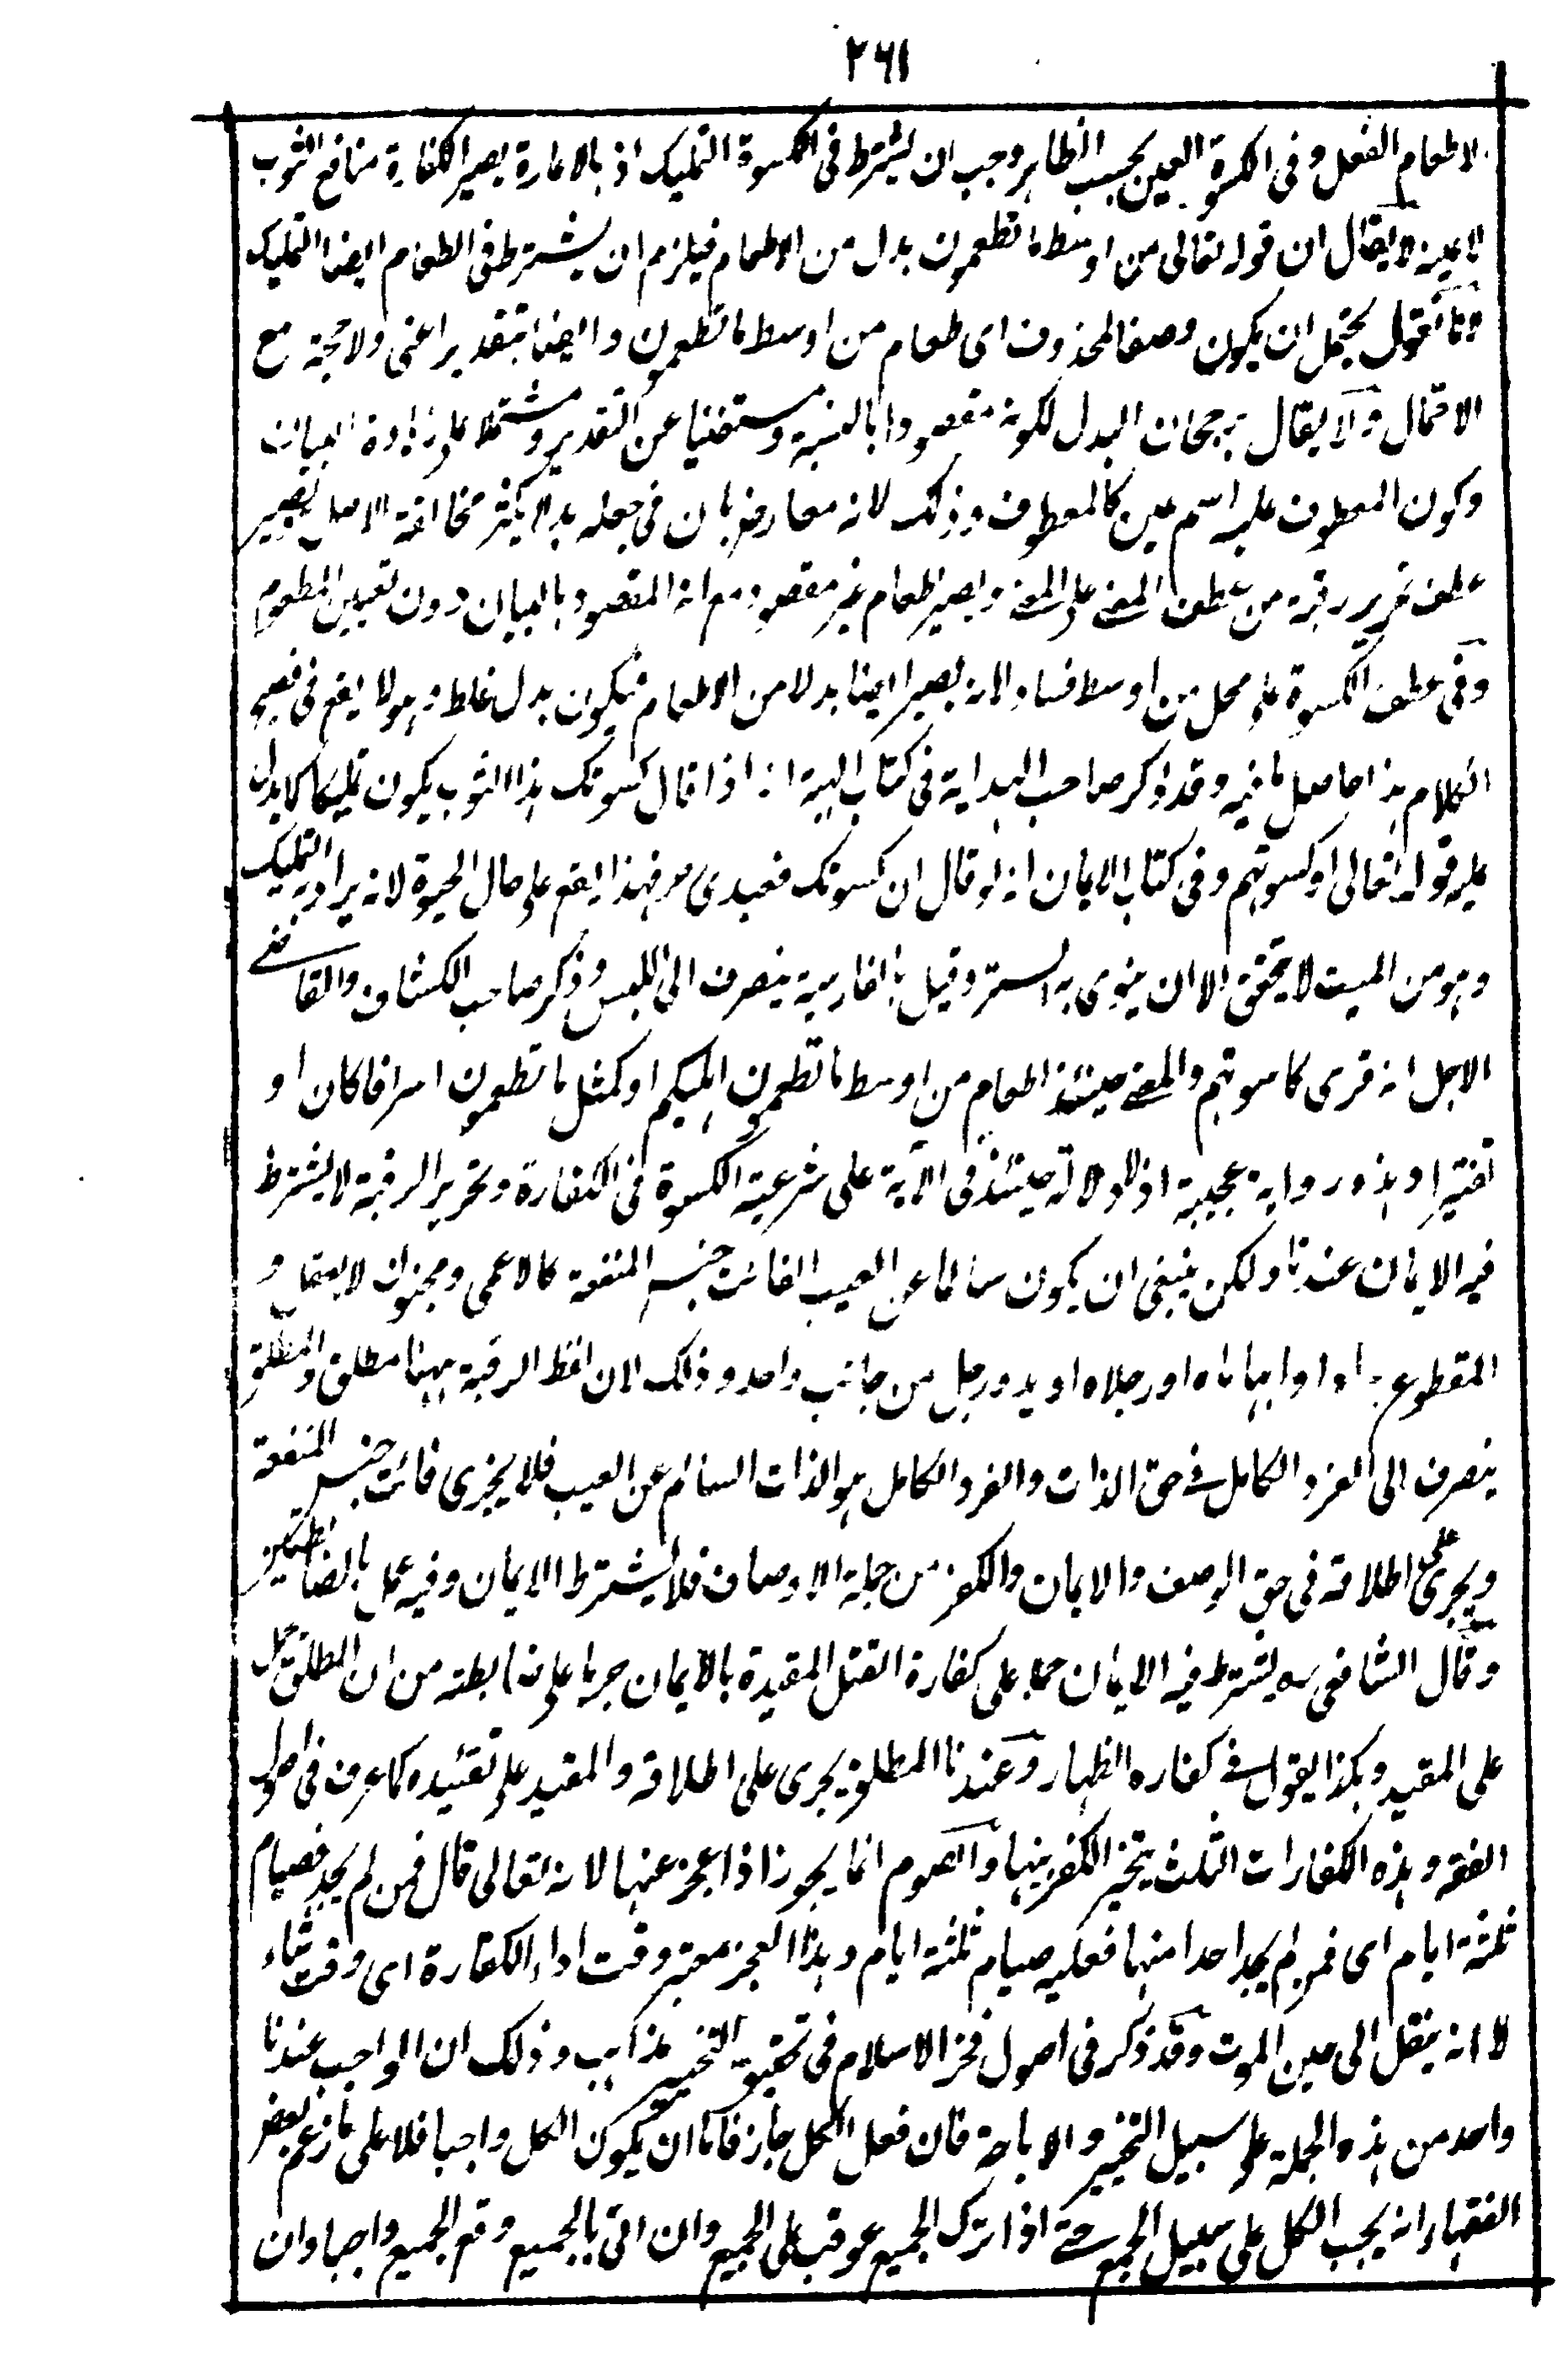 ٢٦١
الاطعام الفعل وفى الكسوة العين بحسب الظاهر وجب ان يشترط فى الكسوة التمليك اذ بالاعارة يصير الكفارة منافع الثوب
لا عينه لا يقال ان قوله تعالى من اوسط ما تطعمون بدل من الاطعام فيلزم ان يشترط فى الطعام ايضا التمليك
لانا نقول يحتمل ان يكون وصفا لمحذوف اى طعام من اوسط ما تطعمون وايضا بتقدير اعنى ولا حجة مع
الاحتمال ولا يقال برجحان البدل لكونه مقصودا بالنسبة ومستغنيا عن التقدير ومشتملا على زيادة البيان
وكون المعطوف عليه اسم عين كالمعطوف وذلك لانه معارض بان فى جعله بدلا يكثر مخالفة الاصل يصير
عطف تحرير رقبة من عطف المعنى على المعنى ويصير طعام غير مقصود مع انه المقصود بالبيان دون تعيين المطعوم
وفى عطف الكسوة على محل من اوسط فساد لانه يصير ايضا بدلا من الاطعام فيكون بدل غلط وهو لا يقع فى فصيح
الكلام هذا حاصل ما فيه وقد ذكر صاحب الهداية فى كتاب الهبة انه اذا قال كسوتك هذا الثوب يكون تمليكا كما يدل
عليه قوله تعالى او كسوتهم وفى كتاب الايمان انه لو قال ان كسوتك فعبدى حر فهذا يقع على حال الحيوة لانه يراد به التمليك
وهو من الميت لا يتحقق الا ان ينوى به الستر وقيل بالفارسية ينصرف الى اللبس وذكر صاحب الكشاف والقاضى
الاجل انه قرى كاسوتهم والمعنى حينئذ اطعام من اوسط ما تطعمون اهليكم او كمثل ما تطعمون اسرافا كان او
تقتيرا وهذه رواية عجيبة اذ لا دلالة حينئذ فى الآية على شرعية الكسوة فى الكفارة وتحرير الرقبة لا يشترط
فيه الايمان عندنا ولكن ينبغى ان يكون سالما عن العيب الفائت جنس المنفعة كالاعمى ومجنون لا يعقل و
المقطوع يداه او ابهاماه او رجلاه او يد ورجل من جانب واحد وذلك لان لفظ الرقبة ههنا مطلق والمطلق
ينصرف الى الفرد الكامل فى حق الذات والفرد الكامل هو الذات السالم عن العيب فلا يجزى فائت جنس المنفعة
ويجرى على اطلاقه فى حق الوصف والايمان والكفر من جملة الاوصاف فلا يشترط الايمان وفيه عمل بالضابطتين
وقال الشافعى رح يشترط فيه الايمان حملا على كفارة القتل المقيدة بالايمان جريا على ضابطته من ان المطلق يحمل
على المقيد وهكذا يقول فى كفارة الظهار وعندنا المطلق يجرى على اطلاقه والمقيد على تقئيده كما عرف فى اصول
الفقه وهذه الكفارات الثلث يتخير المكفر بينها والصوم انما يجوز اذا عجز عنها لانه تعالى قال فمن لم يجد فصيام
ثلثة ايام اى فمن لم يجد احدا منها فعليه صيام ثلثة ايام وهذا العجز معتبر وقت اداء الكفارة اى وقت شاء
لا انه ينقل الى حين الموت وقد ذكر فى اصول فخر الاسلام فى تحقيق التخيير مذاهب وذلك ان الواجب عندنا
واحد من هذه الجملة على سبيل التخيير والاباحة فان فعل الكل جاز فاما ان يكون الكل واجبا فلا على ما زعم بعض
الفقهاء انه يجب الكل على سبيل الجمع حتى اذا ترك الجميع عوقب على الجميع وان اتى بالجميع وقع الجميع واجبا وان